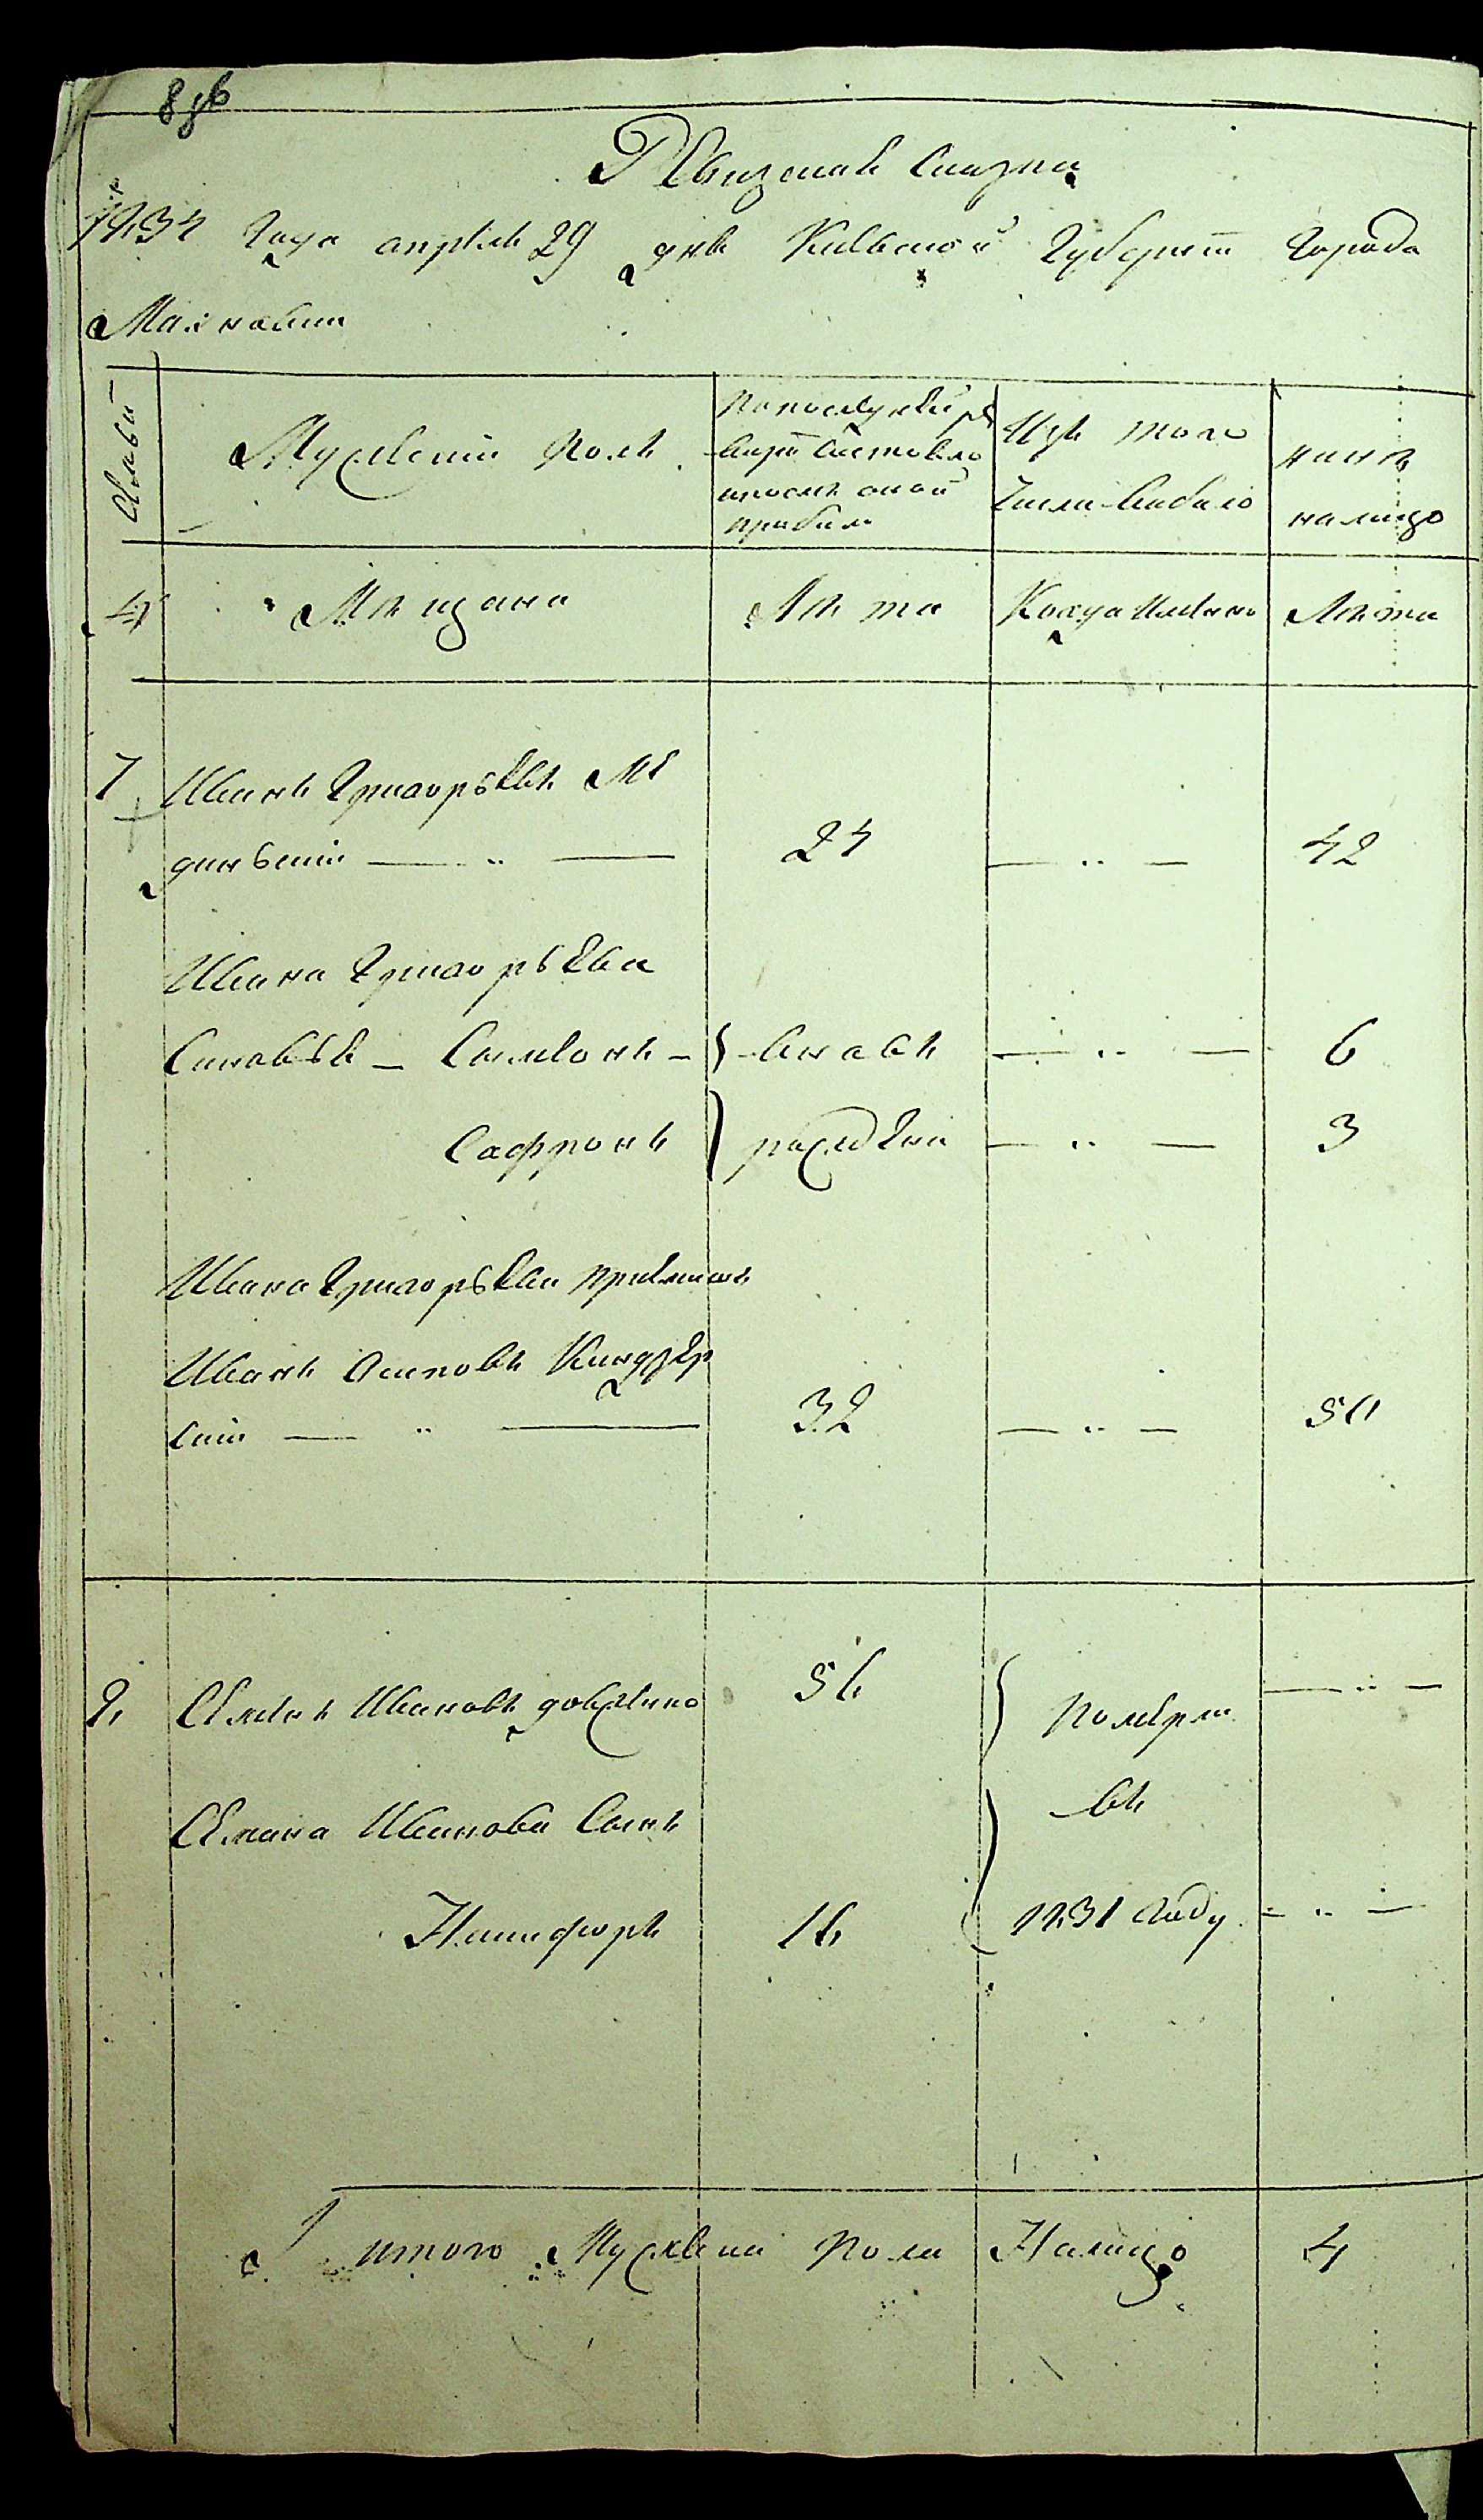 Ревизская Сказка
1834 Года апреля 29 дня Киевской Губернiи Города
Махновки
Семьи
Мужеский полъ
По последней ре
визiи состояло
и после оной
прибыло
Изъ того
Числа выбыло
ныне
налицо
№
Мѣщане
Лѣта
Когда именно
Лѣта
7 Иванъ Григорьевъ Ме
диньскiй — „ — 24 — „ — 42
Ивана Григорьева
Сыновья – Симеонъ – вновь — „ — 6
Сафронъ рожденни — „ — 3
Ивана Григорьева приемышъ
Иванъ Осиповъ Киндзер
скiй — „ — 32 — „ — 50
8. Семенъ Ивановъ довженко 56 Померли — „ —
Семена Иванова Сынъ въ
Никифоръ 16 1831 Году — „ —
итого Мужеска пола Налицо 4